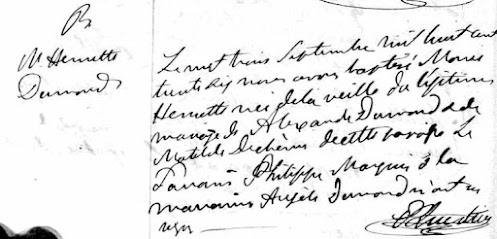 B
M Henriette
Dumond
Le vingt trois Septembre mil huit cent
trente six nous avons baptisé Marie
Henriette née de la veille du légitime
mariage de Alexandre Dumond & de
Matilde de cette paroisse Le
Parrain Philippe Marquis & la
marraine Angèle Dumond n'ont su
signer